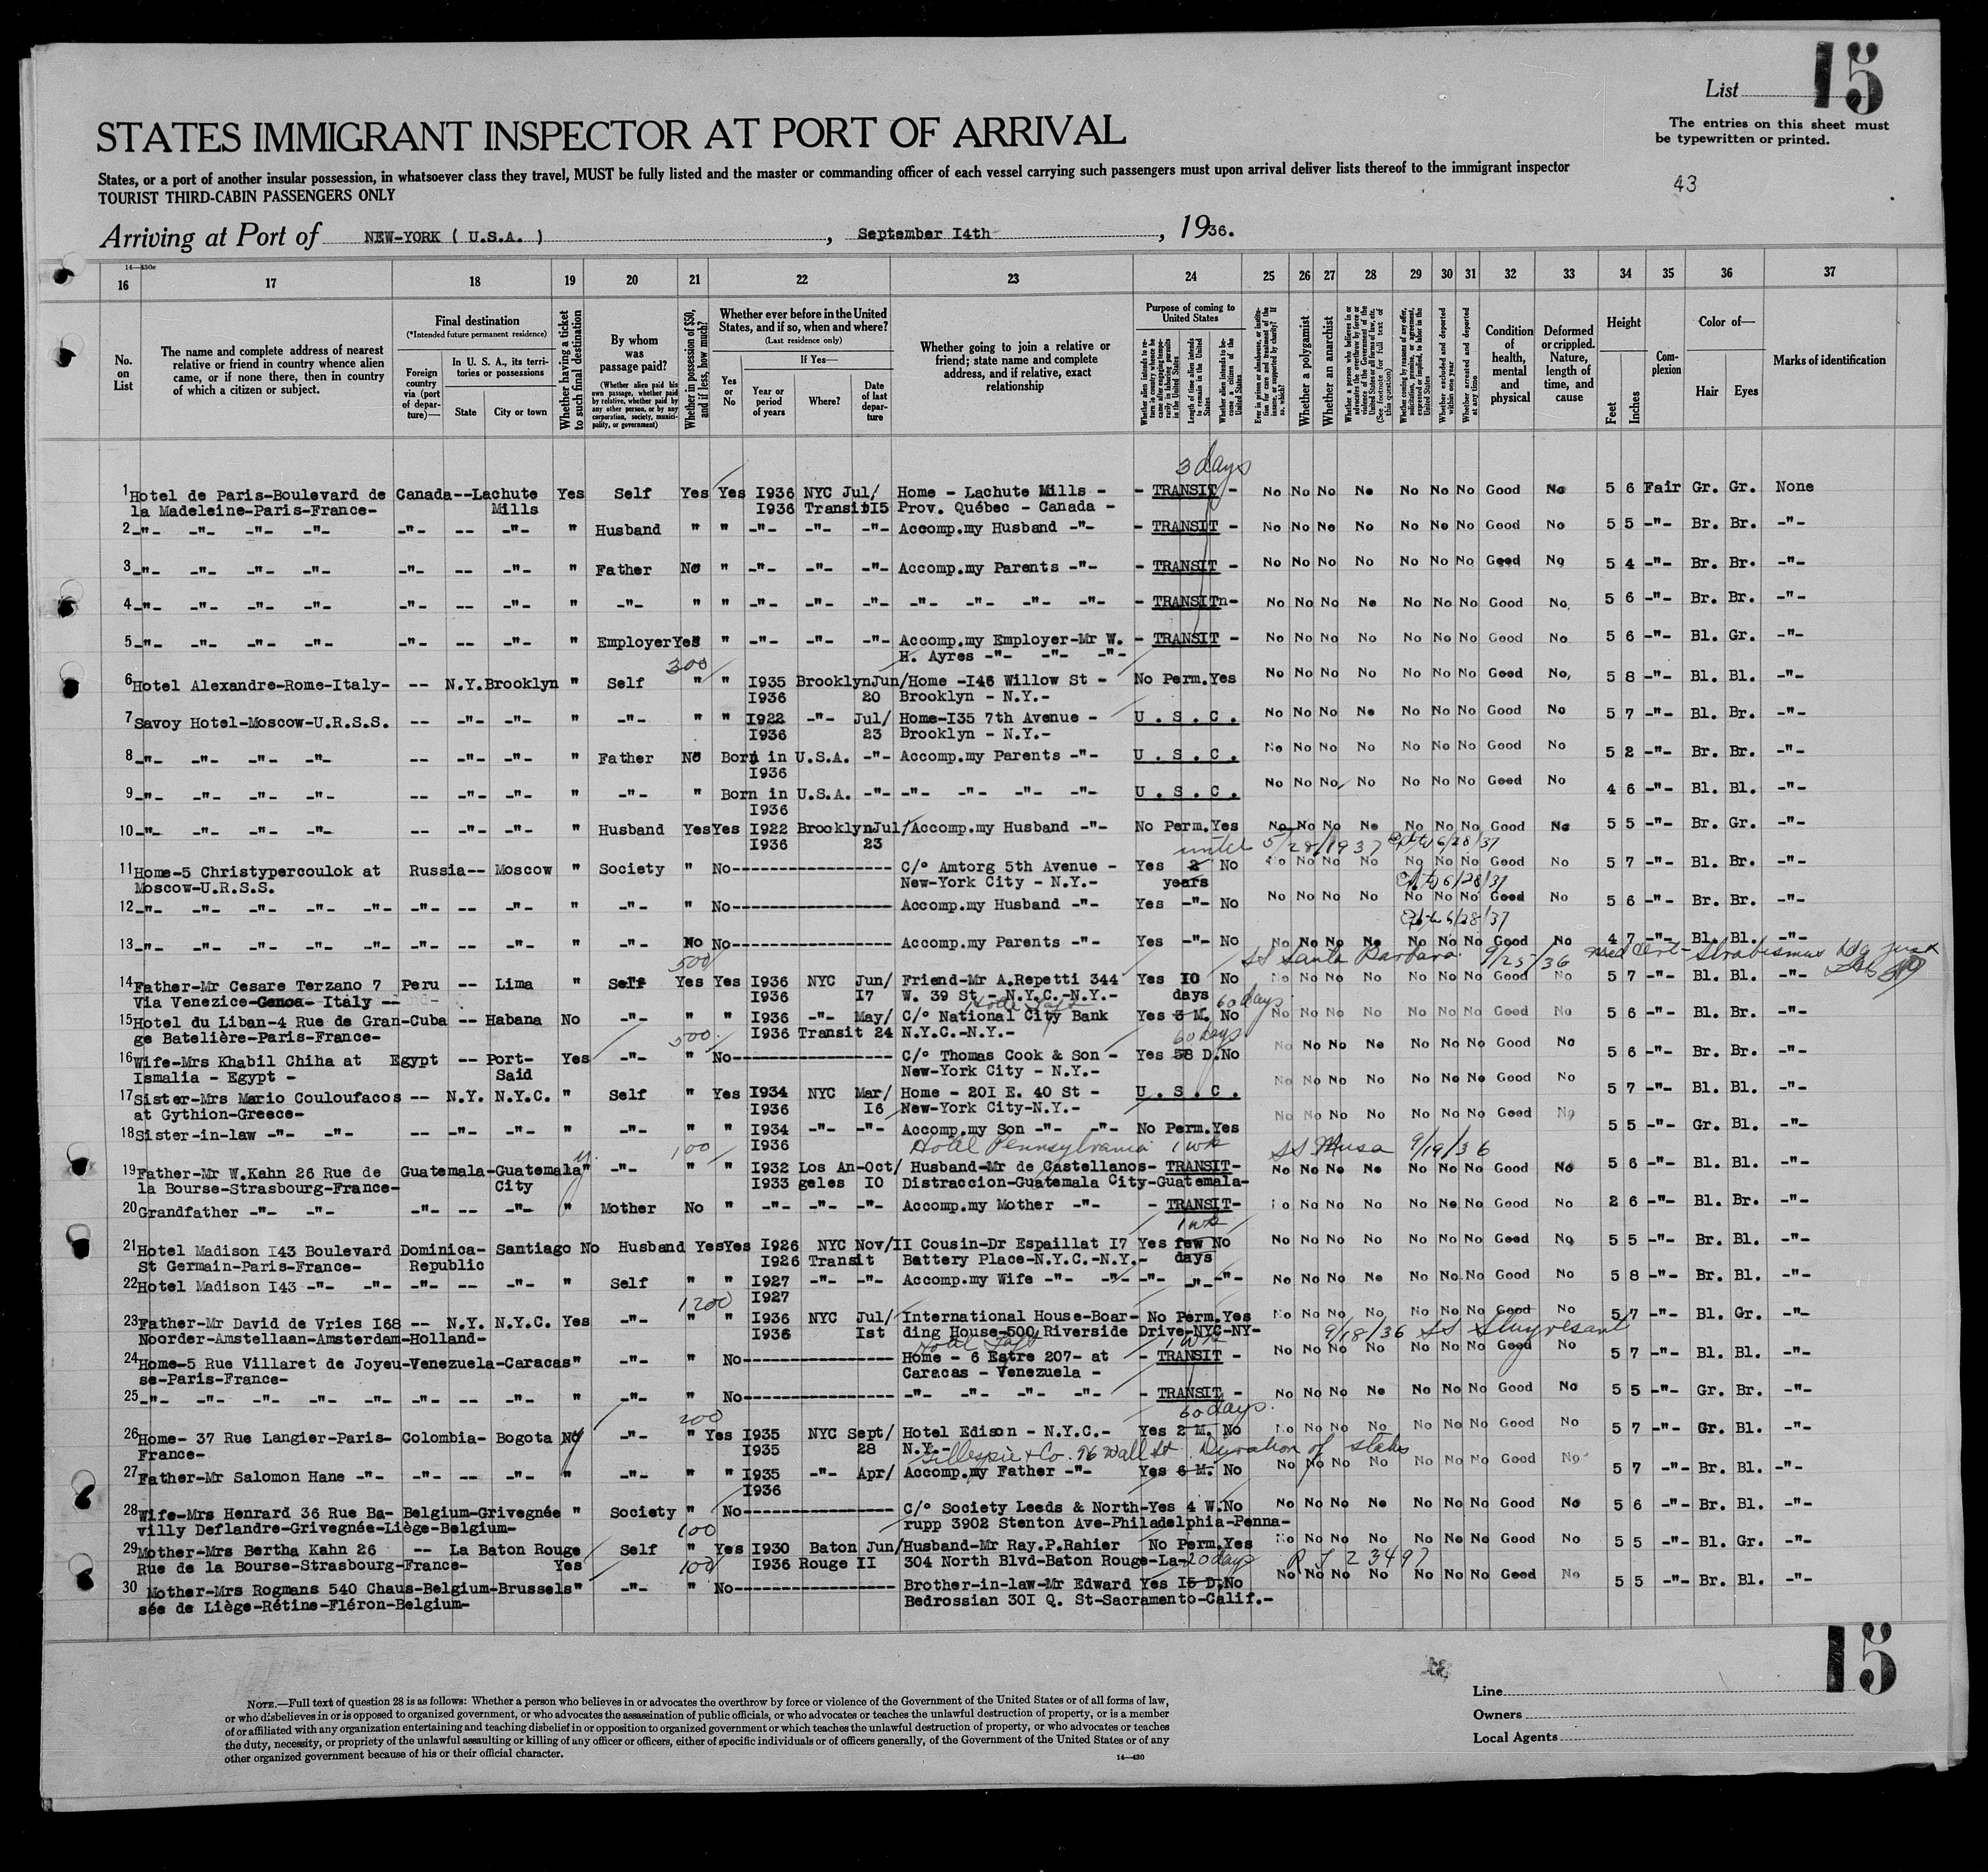 List 15
The entries on this sheet must
be typewritten or printed.
43
STATES IMMIGRANT INSPECTOR AT PORT OF ARRIVAL
States, or a port of another insular possession, in whatsoever class they travel, MUST be fully listed and the master or commanding officer of each vessel carrying such passengers must upon arrival deliver lists thereof to the immigrant inspector
TOURIST THIRD-CABIN PASSENGERS ONLY
Arriving at Port of NEW-YORK ( U.S.A. ) , September I4th , 1936.
16 17 18 19 20 21 22 23 24 25 26 27 28 29 30 31 32 33 34 35 36 37
No. on List
The name and complete address of nearest relative or friend in country whence alien came, or if none there, then in country of which a citizen or subject.
Final destination
(*Intended future permanent residence)
Foreign country via (port of departure)—
In U. S. A., its territories or possessions
State City or town
Whether having a ticket to such final destination
By whom was passage paid?
(Whether alien paid his own passage, whether paid by relative, whether paid by any other person, or by any corporation, society, municipality, or government)
Whether in possession of $50, and if less, how much?
Whether ever before in the United States, and if so, when and where?
(Last residence only)
Yes or No
If Yes—
Year or period of years Where? Date of last departure
Whether going to join a relative or friend; state name and complete address, and if relative, exact relationship
Purpose of coming to United States
Length of time alien intends to remain in the United States
Whether alien intends to become a citizen of the United States
Whether a polygamist
Whether an anarchist
(See footnote for full text of this question)
Whether excluded and deported within one year
Whether arrested and deported at any time
Condition of health, mental and physical
Deformed or crippled. Nature, length of time, and cause
Height
Feet Inches
Complexion
Color of—
Hair Eyes
Marks of identification
3 days
1 Hotel de Paris-Boulevard de Canada--Lachute Yes Self Yes Yes I936 NYC Jul/ Home - Lachute Mills - - TRANSIT - No No No No No No No Good No 5 6 Fair Gr. Gr. None
la Madeleine-Paris-France- Mills I936 Transit I5 Prov. Québec - Canada -
2 -"- -"- -"- -"- -"- -- -"- " Husband " " -"- -"- -"- Accomp.my Husband -"- - TRANSIT - No No No No No No No Good No 5 5 -"- Br. Br. -"-
3 -"- -"- -"- -"- -"- -- -"- " Father No " -"- -"- -"- Accomp.my Parents -"- - TRANSIT - No No No No No No No Good No 5 4 -"- Br. Br. -"-
4 -"- -"- -"- -"- -"- -- -"- " -"- " " -"- -"- -"- -"- -"- -"- -"- - TRANSITn- No No No No No No No Good No 5 6 -"- Br. Br. -"-
5 -"- -"- -"- -"- -"- -- -"- " Employer Yes " -"- -"- -"- Accomp.my Employer-Mr W. - TRANSIT - No No No No No No No Good No 5 6 -"- Bl. Gr. -"-
H. Ayres -"- -"- -"-
300
6 Hotel Alexandre-Rome-Italy- -- N.Y. Brooklyn " Self " " I935 Brooklyn Jun/ Home -I46 Willow St - No Perm. Yes No No No No No No No Good No 5 8 -"- Bl. Bl. -"-
I936 20 Brooklyn - N.Y.-
7 Savoy Hotel-Moscow-U.R.S.S. -- -"- -"- " -"- " " I922 -"- Jul/ Home-I35 7th Avenue - U.S.C. No No No No No No No Good No 5 7 -"- Bl. Br. -"-
I936 23 Brooklyn - N.Y.-
8 -"- -"- -"- -"- -- -"- -"- " Father No Born in U.S.A. -"- Accomp.my Parents -"- U.S.C. No No No No No No No Good No 5 2 -"- Br. Br. -"-
I936
9 -"- -"- -"- -"- -- -"- -"- " -"- " Born in U.S.A. -"- -"- -"- -"- -"- U.S.C. No No No No No No No Good No 4 6 -"- Bl. Bl. -"-
I936
10 -"- -"- -"- -"- -- -"- -"- " Husband Yes Yes I922 Brooklyn Jul/ Accomp.my Husband -"- No Perm. Yes No No No No No No No Good No 5 5 -"- Br. Gr. -"-
I936 23
until 5/28/1937 6/28/37
11 Home-5 Christypercoulok at Russia-- Moscow " Society " No------------------ C/° Amtorg 5th Avenue - Yes 2 No No No No No No No No Good No 5 7 -"- Bl. Br. -"-
Moscow-U.R.S.S. New-York City - N.Y.- years
6/28/37
12 -"- -"- -"- -"- -"- -"- -- -"- " -"- " No------------------ Accomp.my Husband -"- Yes -"- No No No No No No No No Good No 5 6 -"- Br. Br. -"-
6/28/37
13 -"- -"- -"- -"- -"- -"- -- -"- " -"- No No------------------ Accomp.my Parents -"- Yes -"- No No No No No No No No Good No 4 7 -"- Bl. Bl. -"-
500 SS Santa Barbara 9/25/36 med cert- Strabismus
14 Father-Mr Cesare Terzano 7 Peru -- Lima " Self Yes Yes I936 NYC Jun/ Friend-Mr A.Repetti 344 Yes I0 No No No No No No No No Good No 5 7 -"- Bl. Bl. -"-
Via Venezice-Genoa- Italy -- I936 I7 W. 39 St - N.Y.C.-N.Y.- days
Hotel Taft 60 days
15 Hotel du Liban-4 Rue de Gran-Cuba -- Habana No -"- " " I936 -"- May/ C/° National City Bank Yes 3 M. No No No No No No No No Good No 5 6 -"- Bl. Br. -"-
ge Batelière-Paris-France- I936 Transit 24 N.Y.C.-N.Y.-
500. 60 days
16 Wife-Mrs Khabil Chiha at Egypt -- Port- Yes -"- " No------------------ C/° Thomas Cook & Son - Yes 58 D. No No No No No No No No Good No 5 6 -"- Br. Br. -"-
Ismalia - Egypt - Said New-York City - N.Y.-
17 Sister-Mrs Mario Couloufacos -- N.Y. N.Y.C. " Self " Yes I934 NYC Mar/ Home - 20I E. 40 St - U.S.C. No No No No No No No Good No 5 7 -"- Bl. Bl. -"-
at Gythion-Greece- I936 I6 New-York City-N.Y.-
18 Sister-in-law -"- -"- -- -"- -"- " -"- " " I934 -"- -"- Accomp.my Son -"- -"- No Perm. Yes No No No No No No No Good No 5 5 -"- Gr. Bl. -"-
I936
100 Hotel Pennsylvania 1 wk SS Musa 9/19/36
19 Father-Mr W.Kahn 26 Rue de Guatemala-Guatemala " -"- " " I932 Los An- Oct/ Husband-Mr de Castellanos- TRANSIT- No No No No No No No Good No 5 6 -"- Bl. Bl. -"-
la Bourse-Strasbourg-France- City I933 geles I0 Distraccion-Guatemala City-Guatemala-
20 Grandfather -"- -"- -"- -- -"- " Mother No " -"- -"- -"- Accomp.my Mother -"- - TRANSIT- No No No No No No No Good No 2 6 -"- Bl. Br. -"-
1 wk
21 Hotel Madison I43 Boulevard Dominica- Santiago No Husband Yes Yes I926 NYC Nov/II Cousin-Dr Espaillat I7 Yes few No No No No No No No No Good No 5 5 -"- Br. Bl. -"-
St Germain-Paris-France- Republic I926 Transit Battery Place-N.Y.C.-N.Y.- days
22 Hotel Madison I43 -"- -"- -"- -- -"- " Self " " I927 -"- -"- Accomp.my Wife -"- -"- -"- -"- -"- No No No No No No No Good No 5 8 -"- Br. Bl. -"-
I927
1200
23 Father-Mr David de Vries I68 -- N.Y. N.Y.C. Yes -"- " " I936 NYC Jul/ International House-Boar- No Perm. Yes No No No No No No No Good No 5 7 -"- Bl. Gr. -"-
Noorder-Amstellaan-Amsterdam-Holland- I936 Ist ding House-500 Riverside Drive-NYC-NY-
Hotel Taft 1 wk 9/18/36 SS Stuyvesant
24 Home-5 Rue Villaret de Joyeu-Venezuela-Caracas " -"- " No------------------ Home - 6 Estre 207- at - TRANSIT - No No No No No No No Good No 5 7 -"- Bl. Bl. -"-
se-Paris-France- Caracas - Venezuela -
25 -"- -"- -"- -"- -"- -"- -- -"- " -"- " No------------------ -"- -"- -"- -"- - TRANSIT - No No No No No No No Good No 5 5 -"- Gr. Br. -"-
200 60 days.
26 Home- 37 Rue Langier-Paris- Colombia- Bogota No -"- " Yes I935 NYC Sept/ Hotel Edison - N.Y.C.- Yes 2 M. No No No No No No No No Good No 5 7 -"- Gr. Bl. -"-
France- I935 28 N.Y.-
Gillespie & Co. 96 Wall St. Duration of status
27 Father-Mr Salomon Hane -"- -"- -- -"- " -"- " " I935 -"- Apr/ Accomp.my Father -"- Yes 6 M. No No No No No No No No Good No 5 7 -"- Br. Bl. -"-
I936
28 Wife-Mrs Henrard 36 Rue Ba- Belgium-Grivegnée " Society " No------------------ C/° Society Leeds & North-Yes 4 W. No No No No No No No No Good No 5 6 -"- Br. Bl. -"-
villy Deflandre-Grivegnée-Liège-Belgium- rupp 3902 Stenton Ave-Philadelphia-Penna-
100
29 Mother-Mrs Bertha Kahn 26 -- La Baton Rouge Self " Yes I930 Baton Jun/ Husband-Mr Ray.P.Rahier No Perm. Yes No No No No No No No Good No 5 5 -"- Bl. Gr. -"-
Rue de la Bourse-Strasbourg-France- Yes I936 Rouge II 304 North Blvd-Baton Rouge-La-
100 20 days 23497
30 Mother-Mrs Rogmans 540 Chaus-Belgium-Brussels " -"- " No------------------ Brother-in-law-Mr Edward Yes I5 D. No No No No No No No No Good No 5 5 -"- Br. Bl. -"-
sée de Liège-Rétine-Fléron-Belgium- Bedrossian 30I Q. St-Sacramento-Calif.-
15
NOTE.—Full text of question 28 is as follows: Whether a person who believes in or advocates the overthrow by force or violence of the Government of the United States or of all forms of law,
or who disbelieves in or is opposed to organized government, or who advocates the assassination of public officials, or who advocates or teaches the unlawful destruction of property, or is a member
of or affiliated with any organization entertaining and teaching disbelief in or opposition to organized government or which teaches the unlawful destruction of property, or who advocates or teaches
the duty, necessity, or propriety of the unlawful assaulting or killing of any officer or officers, either of specific individuals or of officers generally, of the Government of the United States or of any
other organized government because of his or their official character.
14—430
Line
Owners
Local Agents